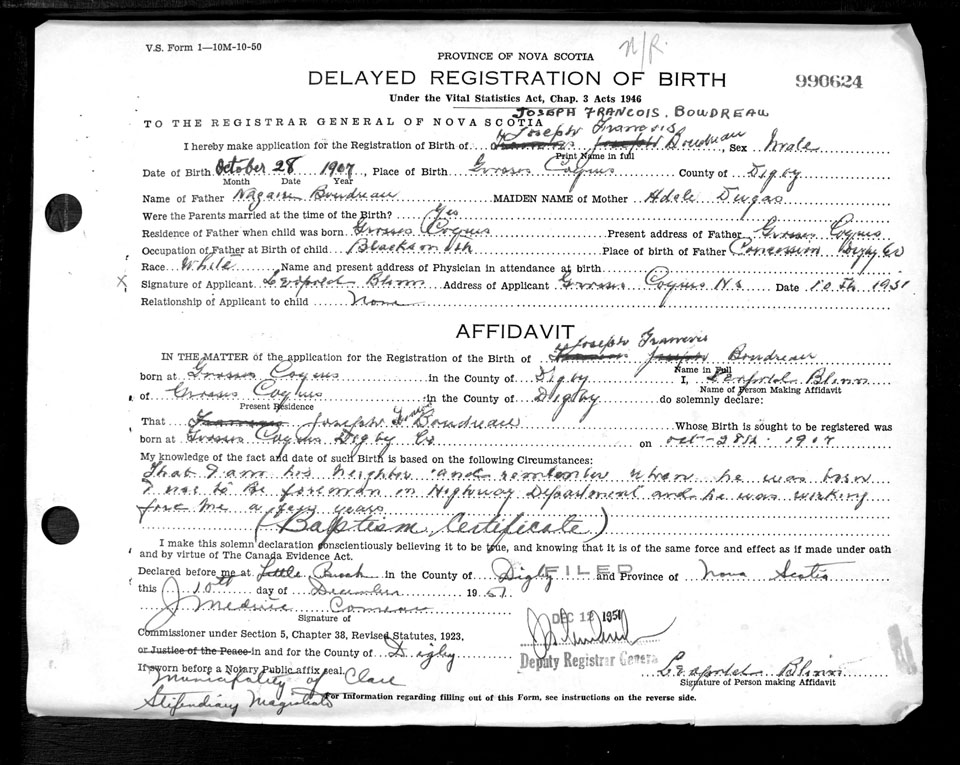 V.S. Form 1—10M-10-50
N/R.
PROVINCE OF NOVA SCOTIA
DELAYED REGISTRATION OF BIRTH
990624
Under the Vital Statistics Act, Chap. 3 Acts 1946
JOSEPH FRANCOIS. BOUDREAU
TO THE REGISTRAR GENERAL OF NOVA SCOTIA
Joseph Francois
I hereby make application for the Registration of Birth of Joseph Boudreau, Sex Male
Print Name in full
Date of Birth October 28 1907, Place of Birth Grosses Coques County of Digby
Month Date Year
Name of Father Boudreau MAIDEN NAME of Mother Adele Dugas
Were the Parents married at the time of the Birth? Yes
Residence of Father when child was born Grosses Coques Present address of Father Grosses Coques
Occupation of Father at Birth of child Blacksmith Place of birth of Father Concession Digby Co
Race White Name and present address of Physician in attendance at birth
X Signature of Applicant Leopold Blinn Address of Applicant Grosses Coques N.S Date 10th 1951
Relationship of Applicant to child None
AFFIDAVIT
Joseph Francois
IN THE MATTER of the application for the Registration of the Birth of Joseph Boudreau
Name in Full
born at Grosses Coques in the County of Digby I, Leopold Blinn
Name of Person Making Affidavit
of Grosses Coques in the County of Digby do solemnly declare:
Present Residence
That Joseph Boudreau Whose Birth is sought to be registered was
born at Grosses Coques Digby Co on Oct-28th. 1907
My knowledge of the fact and date of such Birth is based on the following Circumstances:
That I am his neighbor and remember when he was born
I use to be foreman in Highway Department and he was working
for me a few years
(Baptism Certificate)
I make this solemn declaration conscientiously believing it to be true, and knowing that it is of the same force and effect as if made under oath
and by virtue of The Canada Evidence Act.
Declared before me at Little Brook in the County of Digby and Province of Nova Scotia
FILED
this 10th day of December 1951.
J Comeau
Signature of
DEC 12 1951
Commissioner under Section 5, Chapter 38, Revised Statutes, 1923,
or Justice of the Peace in and for the County of Digby
Deputy Registrar General
If sworn before a Notary Public affix seal.
Leopold Blinn
Signature of Person making Affidavit
Municipality of Clare
Stipendiary Magistrate
For Information regarding filling out of this Form, see instructions on the reverse side.